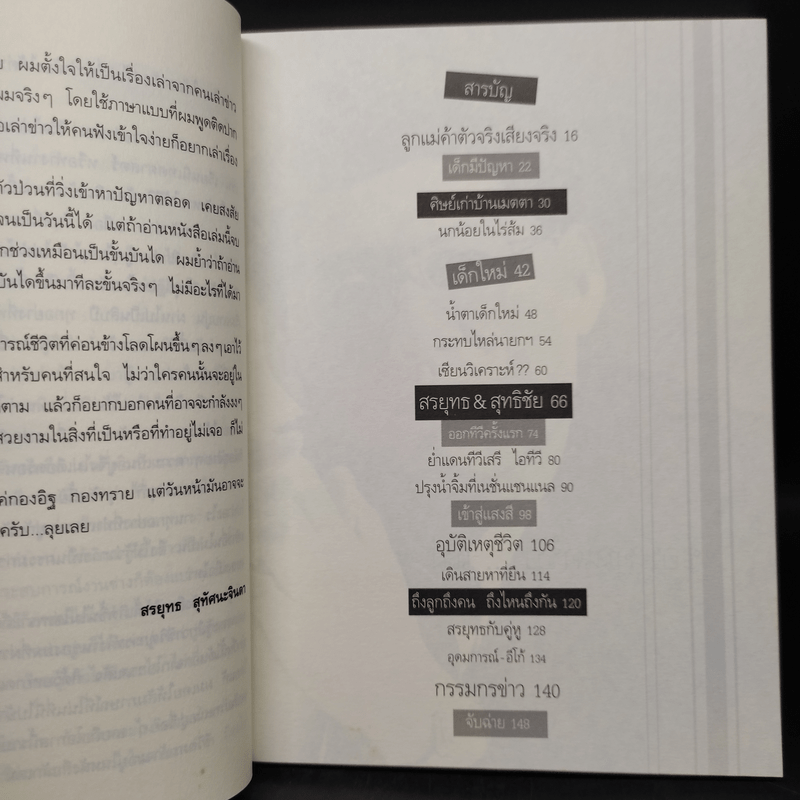 ผมตั้งใจให้เป็นเรื่องเล่าจากคนเล่าข่าว
ผมจริงๆ โดยใช้ภาษาแบบที่ผมพูดติดปาก
เล่าข่าวให้คนฟังเข้าใจง่ายก็อยากเล่าเรื่อง
ตัวป่วนที่วิ่งเข้าหาปัญหาตลอด เคยสงสัย
จนเป็นวันนี้ได้ แต่ถ้าอ่านหนังสือเล่มนี้จบ
กช่วงเหมือนเป็นขั้นบันได ผมย้ำว่าถ้าอ่าน
บันไดขึ้นมาทีละขั้นจริงๆ ไม่มีอะไรที่ได้มา
ารณ์ชีวิตที่ค่อนข้างโลดโผนขึ้นๆลงๆเอาไว้
สำหรับคนที่สนใจ ไม่ว่าใครคนนั้นจะอยู่ใน
ตาม แล้วก็อยากบอกคนที่อาจจะกำลังงงๆ
สวยงามในสิ่งที่เป็นหรือที่ทำอยู่ไม่เจอ ก็ไม่
ค่กองอิฐ กองทราย แต่วันหน้ามันอาจจะ
ครับ...ลุยเลย
สรยุทธ สุทัศนะจินดา
สารบัญ
ลูกแม่ค้าตัวจริงเสียงจริง 16
เด็กมีปัญหา 22
ศิษย์เก่าบ้านเมตตา 30
นกน้อยในไร่ส้ม 36
เด็กใหม่ 42
น้ำตาเด็กใหม่ 48
กระทบไหล่นายกฯ 54
เซียนวิเคราะห์?? 60
สรยุทธ & สุทธิชัย 66
ออกทีวีครั้งแรก 74
ย่ำแดนทีวีเสรี ไอทีวี 80
ปรุงน้ำจิ้มที่เนชั่นแชนแนล 90
เข้าสู่แสงสี 98
อุบัติเหตุชีวิต 106
เดินสายหาที่ยืน 114
ถึงลูกถึงคน ถึงไหนถึงกัน 120
สรยุทธกับคู่หู 128
อุดมการณ์-อีโก้ 134
กรรมกรข่าว 140
จับฉ่าย 148